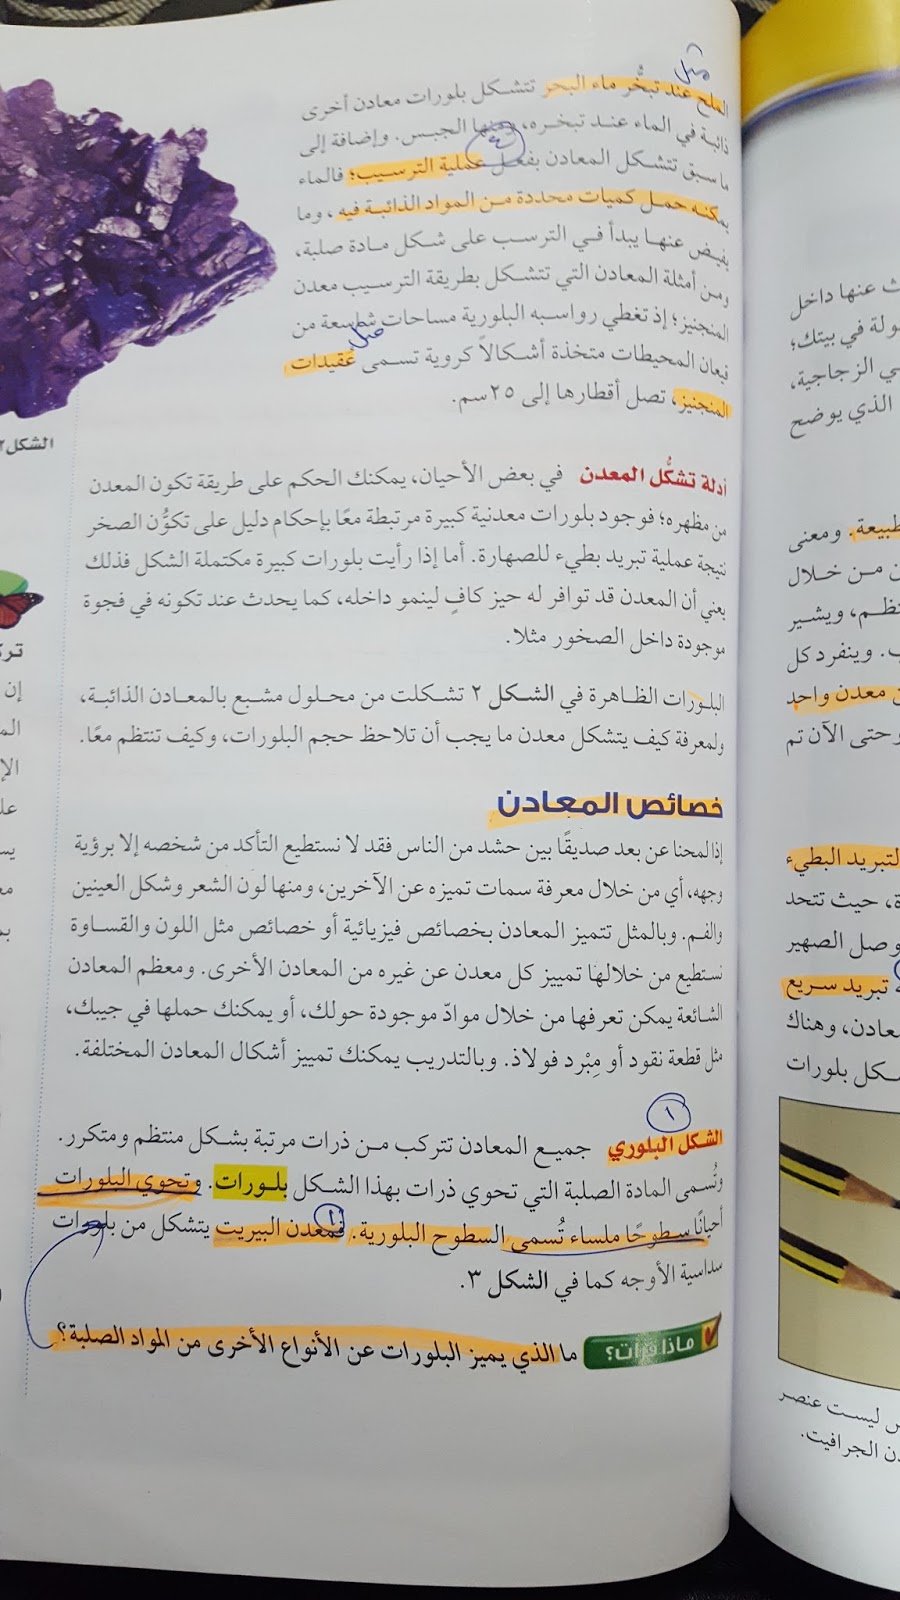 مثل
الملح عند تبخُّر ماء البحر تتشكل بلورات معادن أخرى
ذائبة في الماء عند تبخره، ومنها الجبس. وإضافة إلى
ما سبق تتشكل المعادن بفعل عملية الترسيب؛ فالماء
يمكنه حمل كميات محددة من المواد الذائبة فيه، وما
يفيض عنها يبدأ في الترسب على شكل مادة صلبة،
ومن أمثلة المعادن التي تتشكل بطريقة الترسيب معدن
المنجنيز؛ إذ تغطي رواسبه البلورية مساحات شاسعة من
مثل
قيعان المحيطات متخذة أشكالاً كروية تسمى عُقيدات
المنجنيز، تصل أقطارها إلى ٢٥سم.
الشكل٢
أدلة تشكُّل المعدن في بعض الأحيان، يمكنك الحكم على طريقة تكون المعدن
من مظهره؛ فوجود بلورات معدنية كبيرة مرتبطة معًا بإحكام دليل على تكوُّن الصخر
نتيجة عملية تبريد بطيء للصهارة. أما إذا رأيت بلورات كبيرة مكتملة الشكل فذلك
يعني أن المعدن قد توافر له حيز كافٍ لينمو داخله، كما يحدث عند تكونه في فجوة
موجودة داخل الصخور مثلا.
البلورات الظاهرة في الشكل ٢ تشكلت من محلول مشبع بالمعادن الذائبة،
ولمعرفة كيف يتشكل معدن ما يجب أن تلاحظ حجم البلورات، وكيف تنتظم معًا.
خصائص المعادن
إذا لمحنا عن بعد صديقًا بين حشد من الناس فقد لا نستطيع التأكد من شخصه إلا برؤية
وجهه، أي من خلال معرفة سمات تميزه عن الآخرين، ومنها لون الشعر وشكل العينين
والفم. وبالمثل تتميز المعادن بخصائص فيزيائية أو خصائص مثل اللون والقساوة
نستطيع من خلالها تمييز كل معدن عن غيره من المعادن الأخرى. ومعظم المعادن
الشائعة يمكن تعرفها من خلال موادّ موجودة حولك، أو يمكنك حملها في جيبك،
مثل قطعة نقود أو مِبْرد فولاذ. وبالتدريب يمكنك تمييز أشكال المعادن المختلفة.
١
الشكل البلوري جميع المعادن تتركب من ذرات مرتبة بشكل منتظم ومتكرر.
وتُسمى المادة الصلبة التي تحوي ذرات بهذا الشكل بلورات. وتحوي البلورات
أحيانًا سطوحًا ملساء تُسمى السطوح البلورية. فمعدن البيريت يتشكل من بلورات
سداسية الأوجه كما في الشكل ٣.
ماذا قرأت؟ ما الذي يميز البلورات عن الأنواع الأخرى من المواد الصلبة؟
ث عنها داخل
ولة في بيتك؛
ي الزجاجية،
الذي يوضح
طبيعة. ومعنى
ن من خلال
تظم، ويشير
ب. وينفرد كل
ن معدن واحد
وحتى الآن تم
لتبريد البطيء
ة، حيث تتحد
وصل الصهير
تبريد سريع
عادن، وهناك
كل بلورات
ص ليست عنصر
دن الجرافيت.